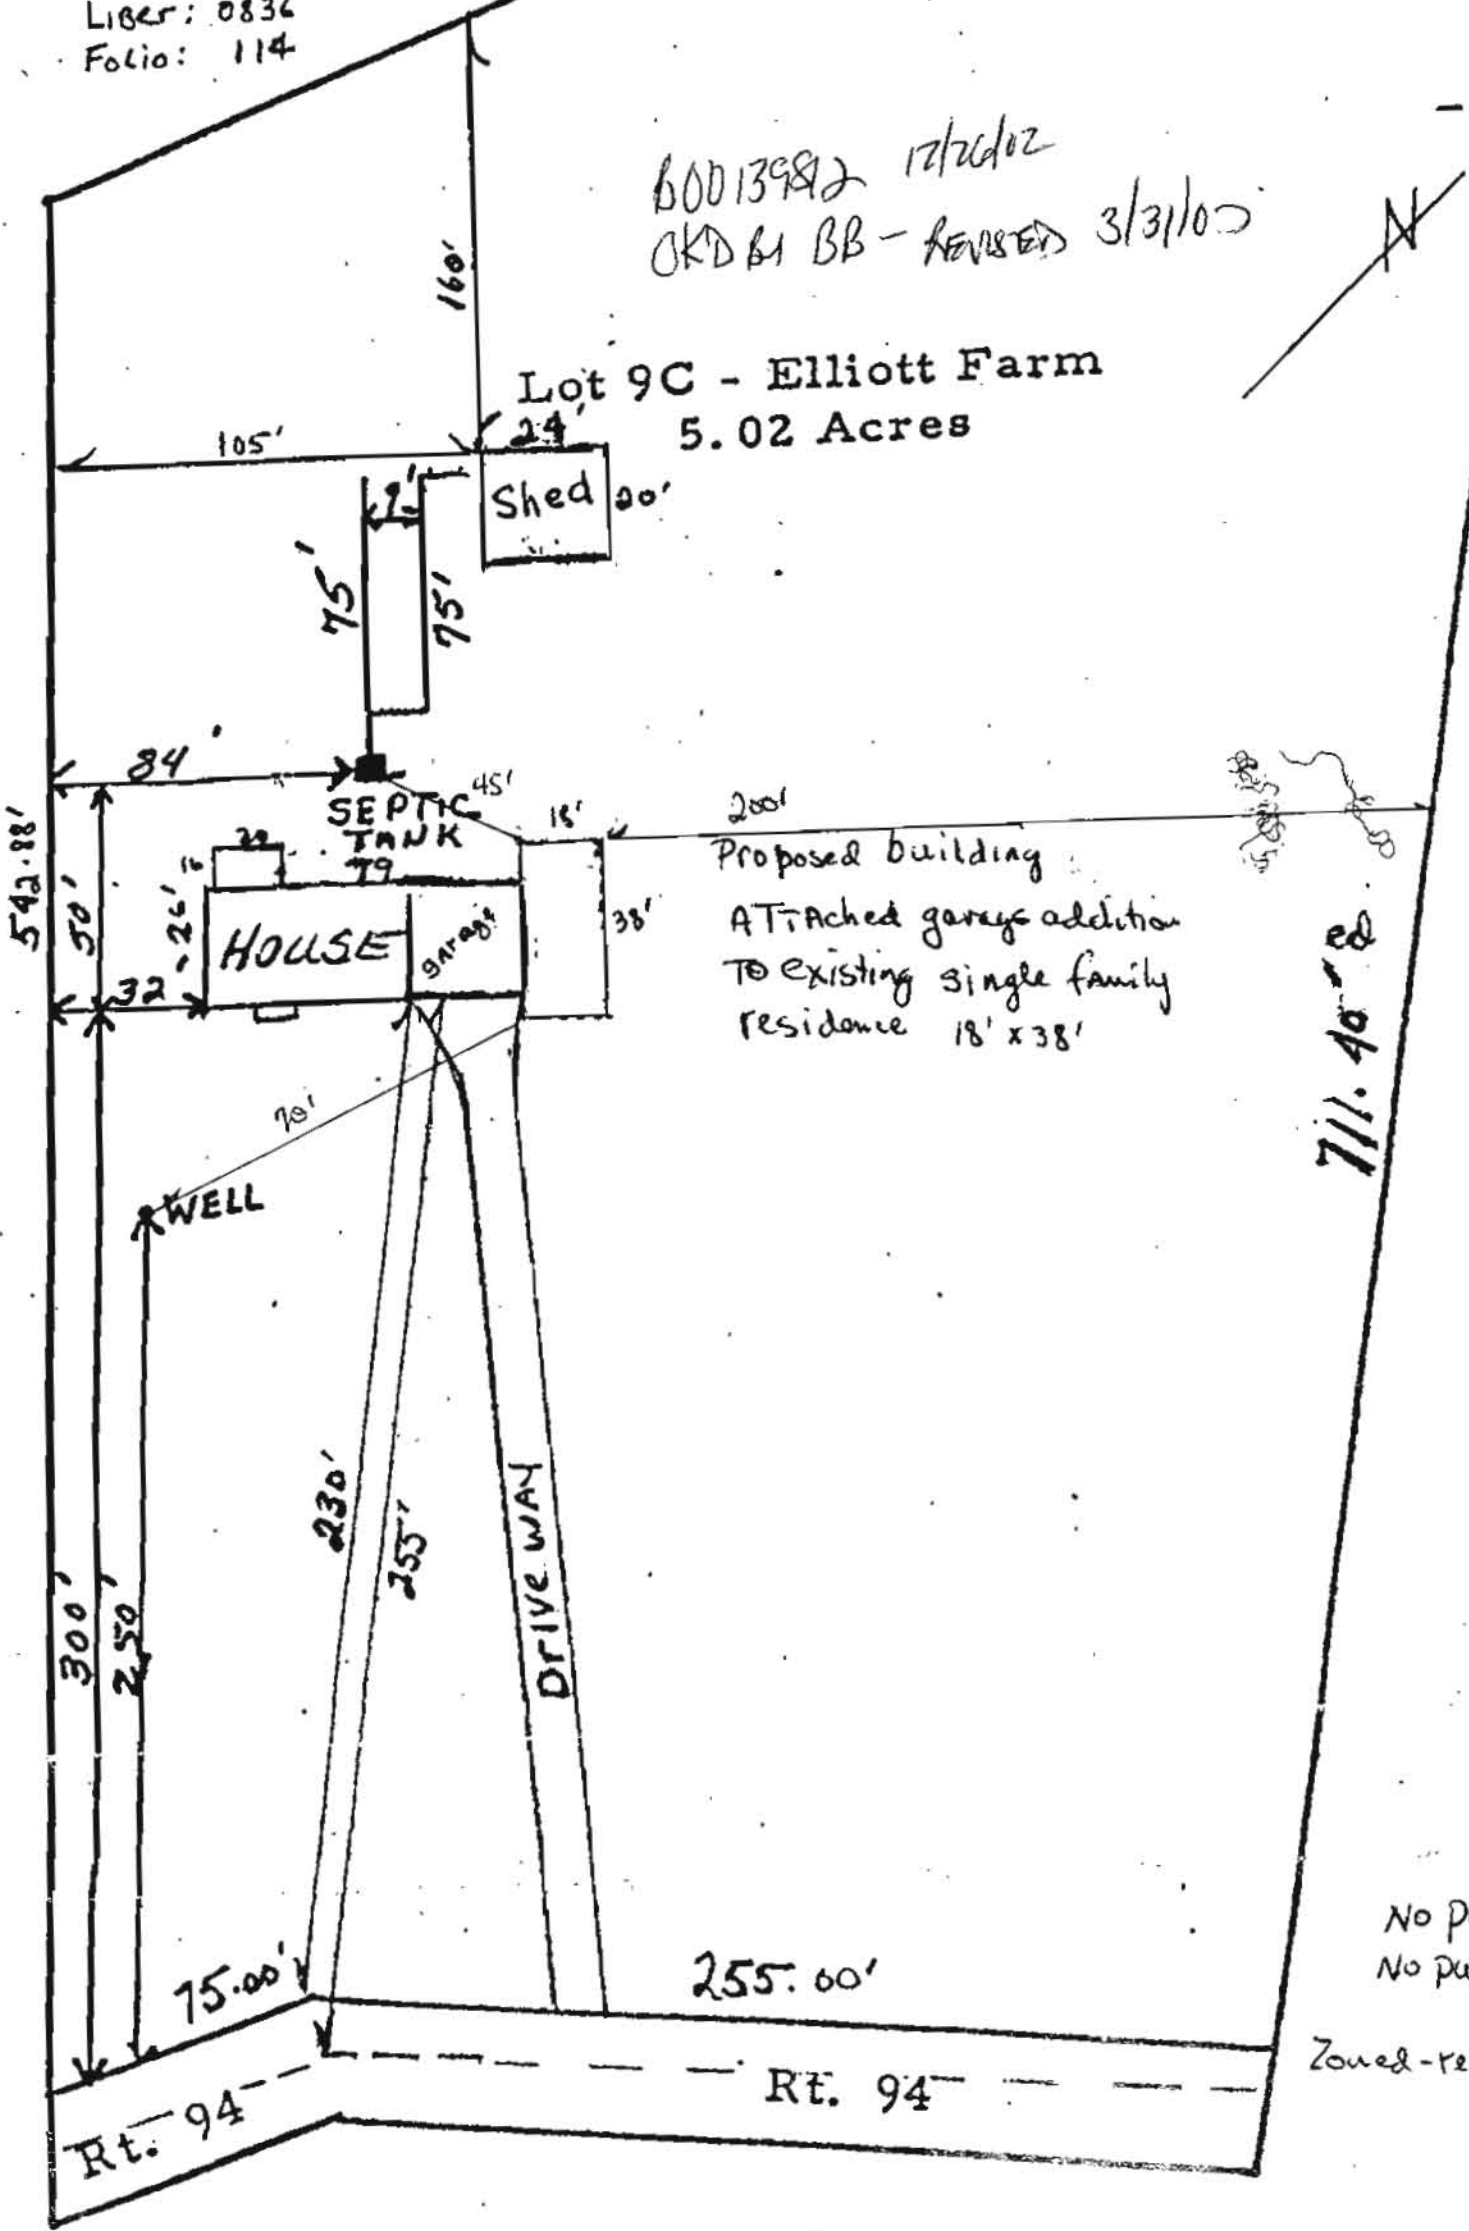 Liber: 0836
Folio: 114
B00139812 12/26/02
OKD BY BB - REVISED 3/31/03
N
Lot 9C - Elliott Farm
5.02 Acres
160'
105'
24'
Shed 20'
9'
75'
75'
84'
SEPTIC
TANK
45'
18'
200'
Proposed building
ATTAched garage addition
To existing single family
residence 18' x 38'
38'
20
16
79
26'
HOUSE
garage
32
50'
542.88'
711.40
ed
70'
WELL
230'
255'
Drive WAY
300'
250'
75.00'
255.00'
No P
No pu
Zoned-re
Rt. 94
Rt. 94